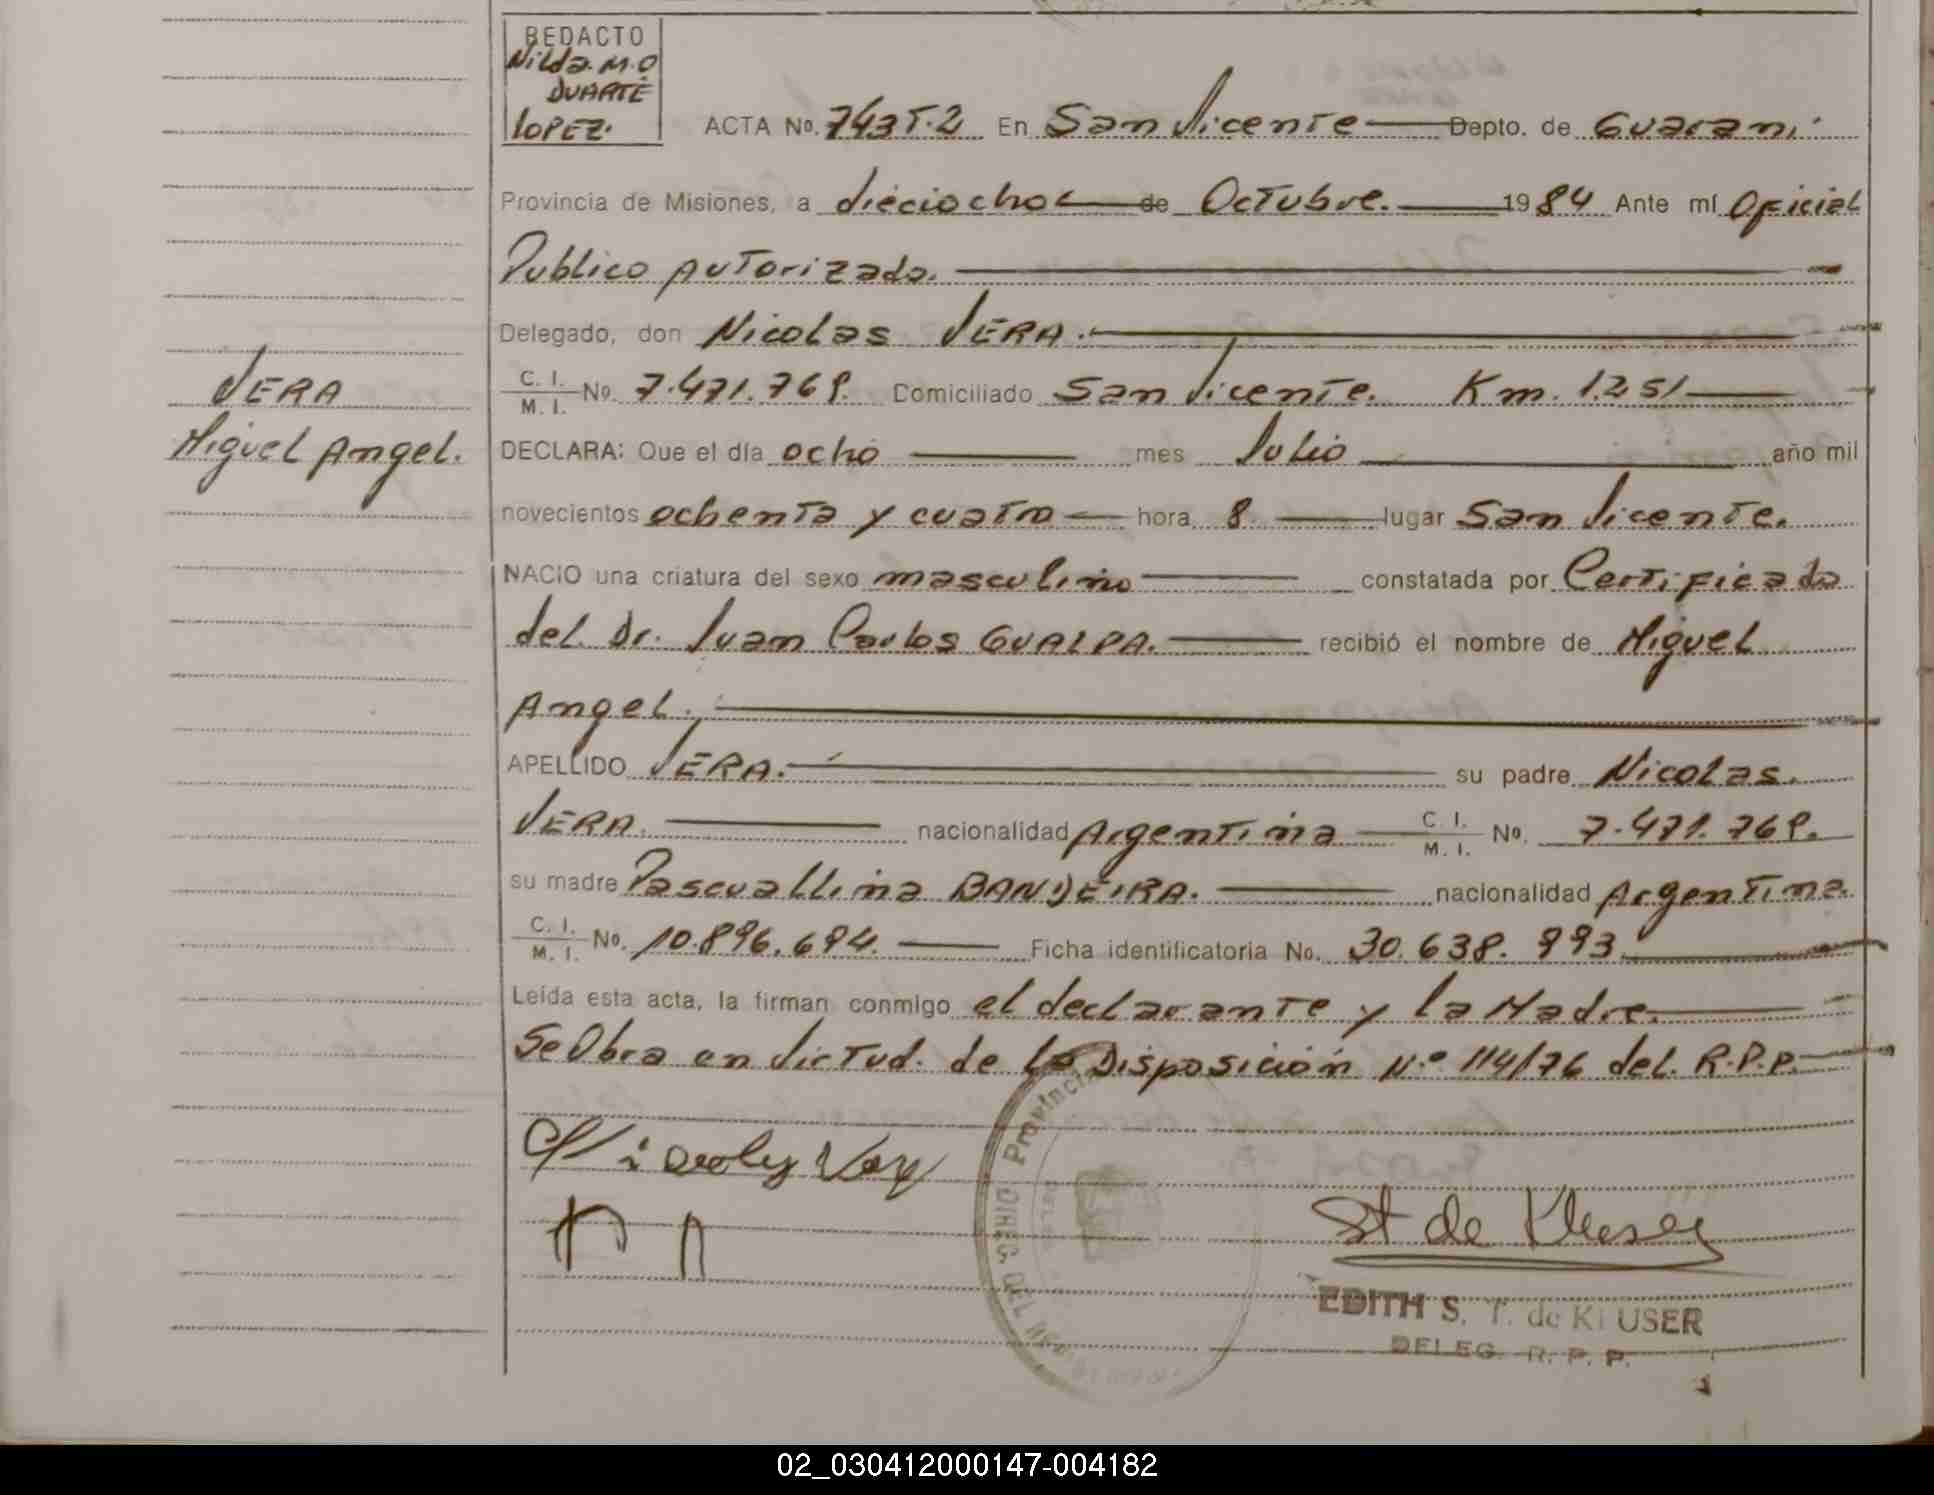 REDACTO
Nilda. M. O
DUARTE
LOPEZ.
ACTA No. 743 T. 2 En San Vicente Depto. de Guarani
Provincia de Misiones, a dieciocho de Octubre. 1984 Ante mí Oficial
Publico Autorizado.
Delegado, don Nicolas VERA.
C. I. / M. I. No. 7.471.769. Domiciliado San Vicente. Km. 1.251
VERA
Miguel Angel.
DECLARA: Que el día ocho mes Julio año mil
novecientos ochenta y cuatro hora 8 lugar San Vicente.
NACIO una criatura del sexo masculino constatada por Certificado
del Dr. Juan Carlos GUALPA. recibió el nombre de Miguel
Angel.
APELLIDO VERA. su padre Nicolas.
VERA. nacionalidad Argentina C. I. / M. I. No. 7.471.769.
su madre Pascuallina BANDEIRA. nacionalidad Argentina.
C. I. / M. I. No. 10.896.694. Ficha identificatoria No. 30.638.993
Leída esta acta, la firman conmigo el declarante y la Madre.
Se Obra en Virtud. de la Disposición N.º 114/76 del. R.P.P.
Provincia
St de Kluser
EDITH S. T. de KLUSER
DELEG. R. P. P.
02_030412000147-004182